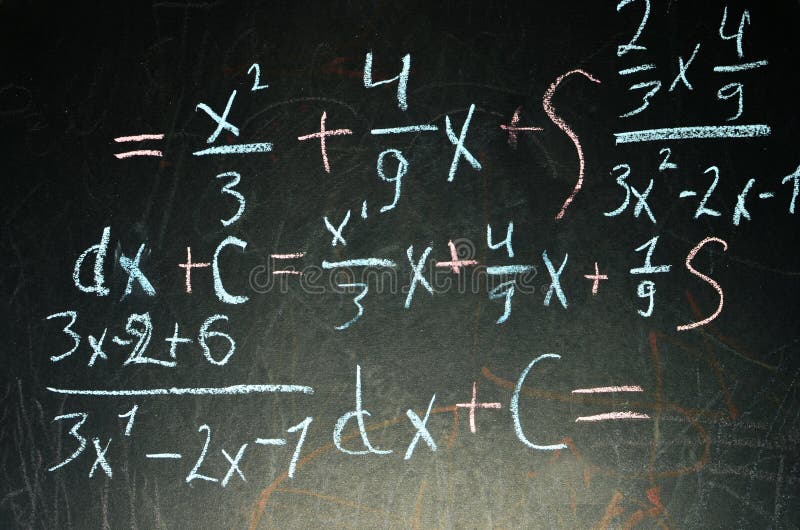 = x²/3 + 4/9 x + ∫ (2/3 x 4/9)/(3x² - 2x - 1)
dx + C = x¹/3 x + 4/9 x + 1/9 ∫
(3x - 2 + 6)/(3x¹ - 2x - 1) dx + C =